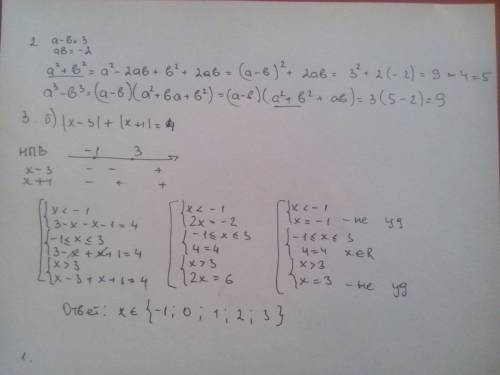 2. a-b=3
ab=-2
a²+b²= a²-2ab+b²+2ab=(a-b)²+2ab= 3²+2(-2)=9-4=5
a³-b³=(a-b)(a²+ba+b²)=(a-b)(a²+b²+ab)=3(5-2)=9
3. б) |x-3|+|x+1|=4
-1 3
x-3 - - +
x+1 - + +
x<-1
3-x-x-1=4
-1≤x≤3
3-x+x+1=4
x>3
x-3+x+1=4
x<-1
2x=-2
-1≤x≤3
4=4
x>3
2x=6
x<-1
x=-1 - не уд
-1≤x≤3
4=4 x∈R
x>3
x=3 - не уд
Ответ: x∈{-1; 0; 1; 2; 3}
1.